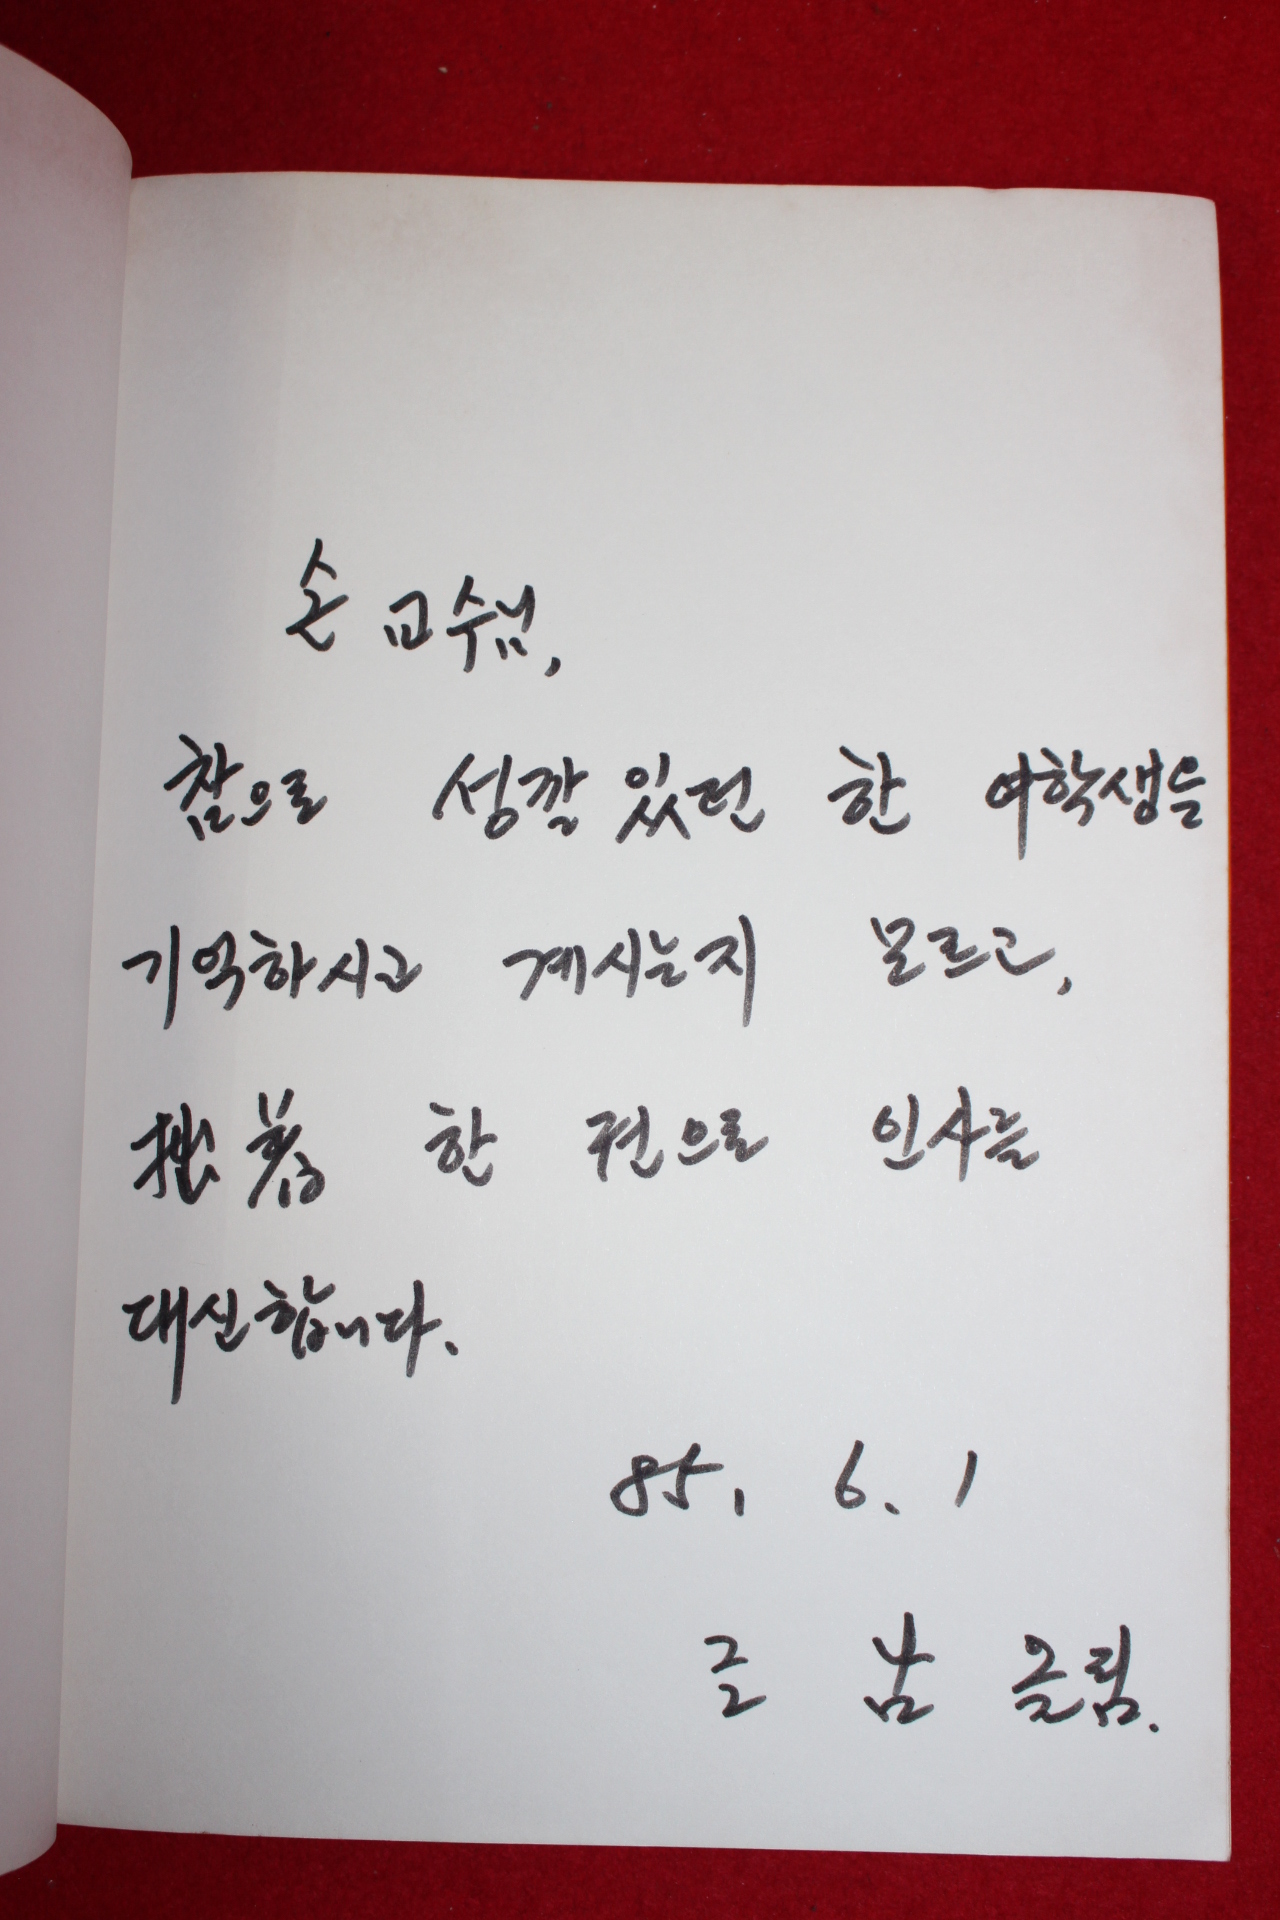 손 교수님,
참으로 성깔 있던 한 여학생을
기억하시고 계시는지 모르고,
拙著 한 권으로 인사를
대신합니다.
85. 6. 1
글 남 올림.